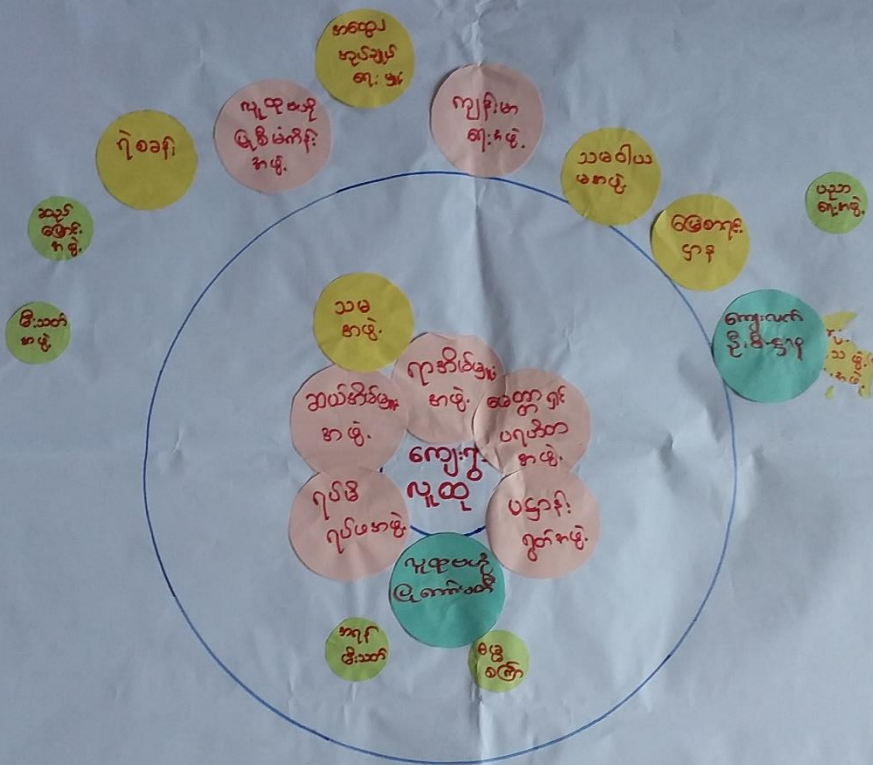 အထွေထွေ
အုပ်ချုပ်
ရေးမှူး
လူထုဗဟို
ပြုစီမံကိန်း
အဖွဲ့
ကျန်းမာ
ရေးအဖွဲ့
ရဲစခန်း
သမဝါယ
မအဖွဲ့
ပညာ
ရေးအဖွဲ့
ဆည်
မြောင်း
အဖွဲ့
မြေစာရင်း
ဌာန
မီးသတ်
အဖွဲ့
ကျေးလက်
ဦးစီးဌာန
သမ
အဖွဲ့
ရာအိမ်မှူး
အဖွဲ့
ဆယ်အိမ်မှူး
အဖွဲ့
မေတ္တာရှင်
ပရဟိတ
အဖွဲ့
ကျေးရွာ
လူထု
ရပ်မိ
ရပ်ဖအဖွဲ့
ပဋ္ဌာန်း
ရွတ်အဖွဲ့
လူထုဗဟို
ပြုကော်မတီ
အရန်
မီးသတ်
ဓမ္မ
စကြာ